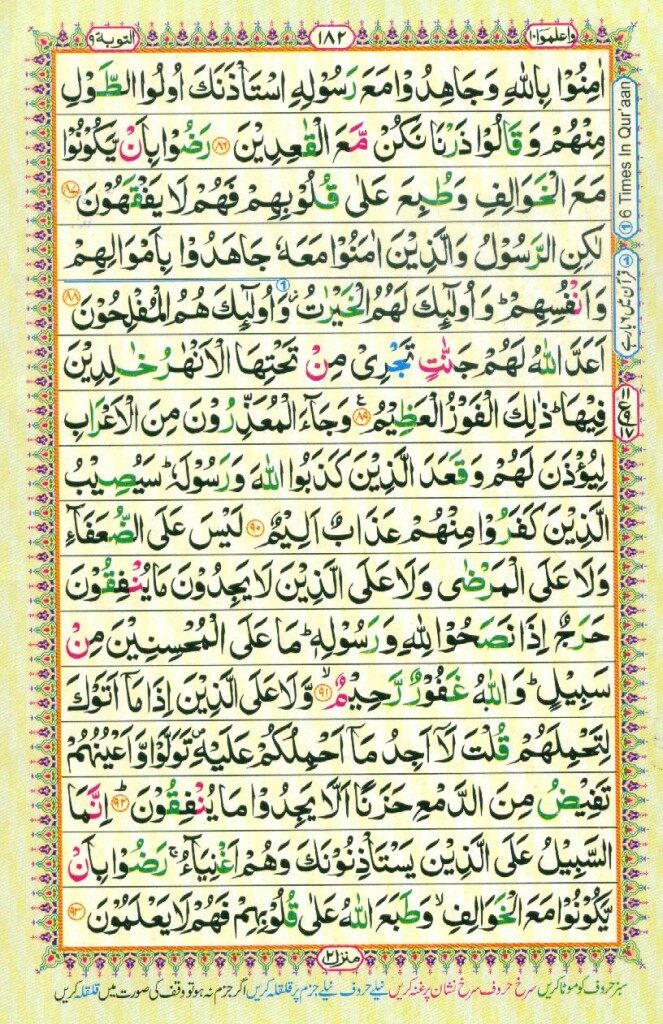 واعلموا ۱۰
۱۸۲
التوبة ۹
اٰمِنُوْا بِاللّٰهِ وَجَاهِدُوْا مَعَ رَسُوْلِهِ اسْتَاْذَنَكَ اُولُوا الطَّوْلِ
مِنْهُمْ وَقَالُوْا ذَرْنَا نَكُنْ مَّعَ الْقٰعِدِيْنَ ﴿۸۶﴾ رَضُوْا بِاَنْ يَّكُوْنُوْا
مَعَ الْخَوَالِفِ وَطُبِعَ عَلٰى قُلُوْبِهِمْ فَهُمْ لَا يَفْقَهُوْنَ ﴿۸۷﴾
لٰكِنِ الرَّسُوْلُ وَالَّذِيْنَ اٰمَنُوْا مَعَهٗ جَاهَدُوْا بِاَمْوَالِهِمْ
وَاَنْفُسِهِمْ ؕ وَاُولٰٓئِكَ لَهُمُ الْخَيْرٰتُ ؗ وَاُولٰٓئِكَ هُمُ الْمُفْلِحُوْنَ ﴿۸۸﴾
اَعَدَّ اللّٰهُ لَهُمْ جَنّٰتٍ تَجْرِيْ مِنْ تَحْتِهَا الْاَنْهٰرُ خٰلِدِيْنَ
فِيْهَا ؕ ذٰلِكَ الْفَوْزُ الْعَظِيْمُ ﴿۸۹﴾ وَجَآءَ الْمُعَذِّرُوْنَ مِنَ الْاَعْرَابِ
لِيُؤْذَنَ لَهُمْ وَقَعَدَ الَّذِيْنَ كَذَبُوا اللّٰهَ وَرَسُوْلَهٗ ؕ سَيُصِيْبُ
الَّذِيْنَ كَفَرُوْا مِنْهُمْ عَذَابٌ اَلِيْمٌ ﴿۹۰﴾ لَيْسَ عَلَى الضُّعَفَآءِ
وَلَا عَلَى الْمَرْضٰى وَلَا عَلَى الَّذِيْنَ لَا يَجِدُوْنَ مَا يُنْفِقُوْنَ
حَرَجٌ اِذَا نَصَحُوْا لِلّٰهِ وَرَسُوْلِهٖ ؕ مَا عَلَى الْمُحْسِنِيْنَ مِنْ
سَبِيْلٍ ؕ وَاللّٰهُ غَفُوْرٌ رَّحِيْمٌ ﴿۹۱﴾ وَّلَا عَلَى الَّذِيْنَ اِذَا مَآ اَتَوْكَ
لِتَحْمِلَهُمْ قُلْتَ لَآ اَجِدُ مَآ اَحْمِلُكُمْ عَلَيْهِ ۪ تَوَلَّوْا وَّاَعْيُنُهُمْ
تَفِيْضُ مِنَ الدَّمْعِ حَزَنًا اَلَّا يَجِدُوْا مَا يُنْفِقُوْنَ ؕ ﴿۹۲﴾ اِنَّمَا
السَّبِيْلُ عَلَى الَّذِيْنَ يَسْتَاْذِنُوْنَكَ وَهُمْ اَغْنِيَآءُ ۚ رَضُوْا بِاَنْ
يَّكُوْنُوْا مَعَ الْخَوَالِفِ ۙ وَطَبَعَ اللّٰهُ عَلٰى قُلُوْبِهِمْ فَهُمْ لَا يَعْلَمُوْنَ ﴿۹۳﴾
6 Times In Qur'aan
قرآن میں ۶ بار ہے
منزل ۲
سبز حروف کو موٹا کریں سرخ حروف سرخ نشان پر غنہ کریں نیلے حروف نیلے جزم پر قلقلہ کریں اگر جزم نہ ہو تو وقف کی صورت میں قلقلہ کریں